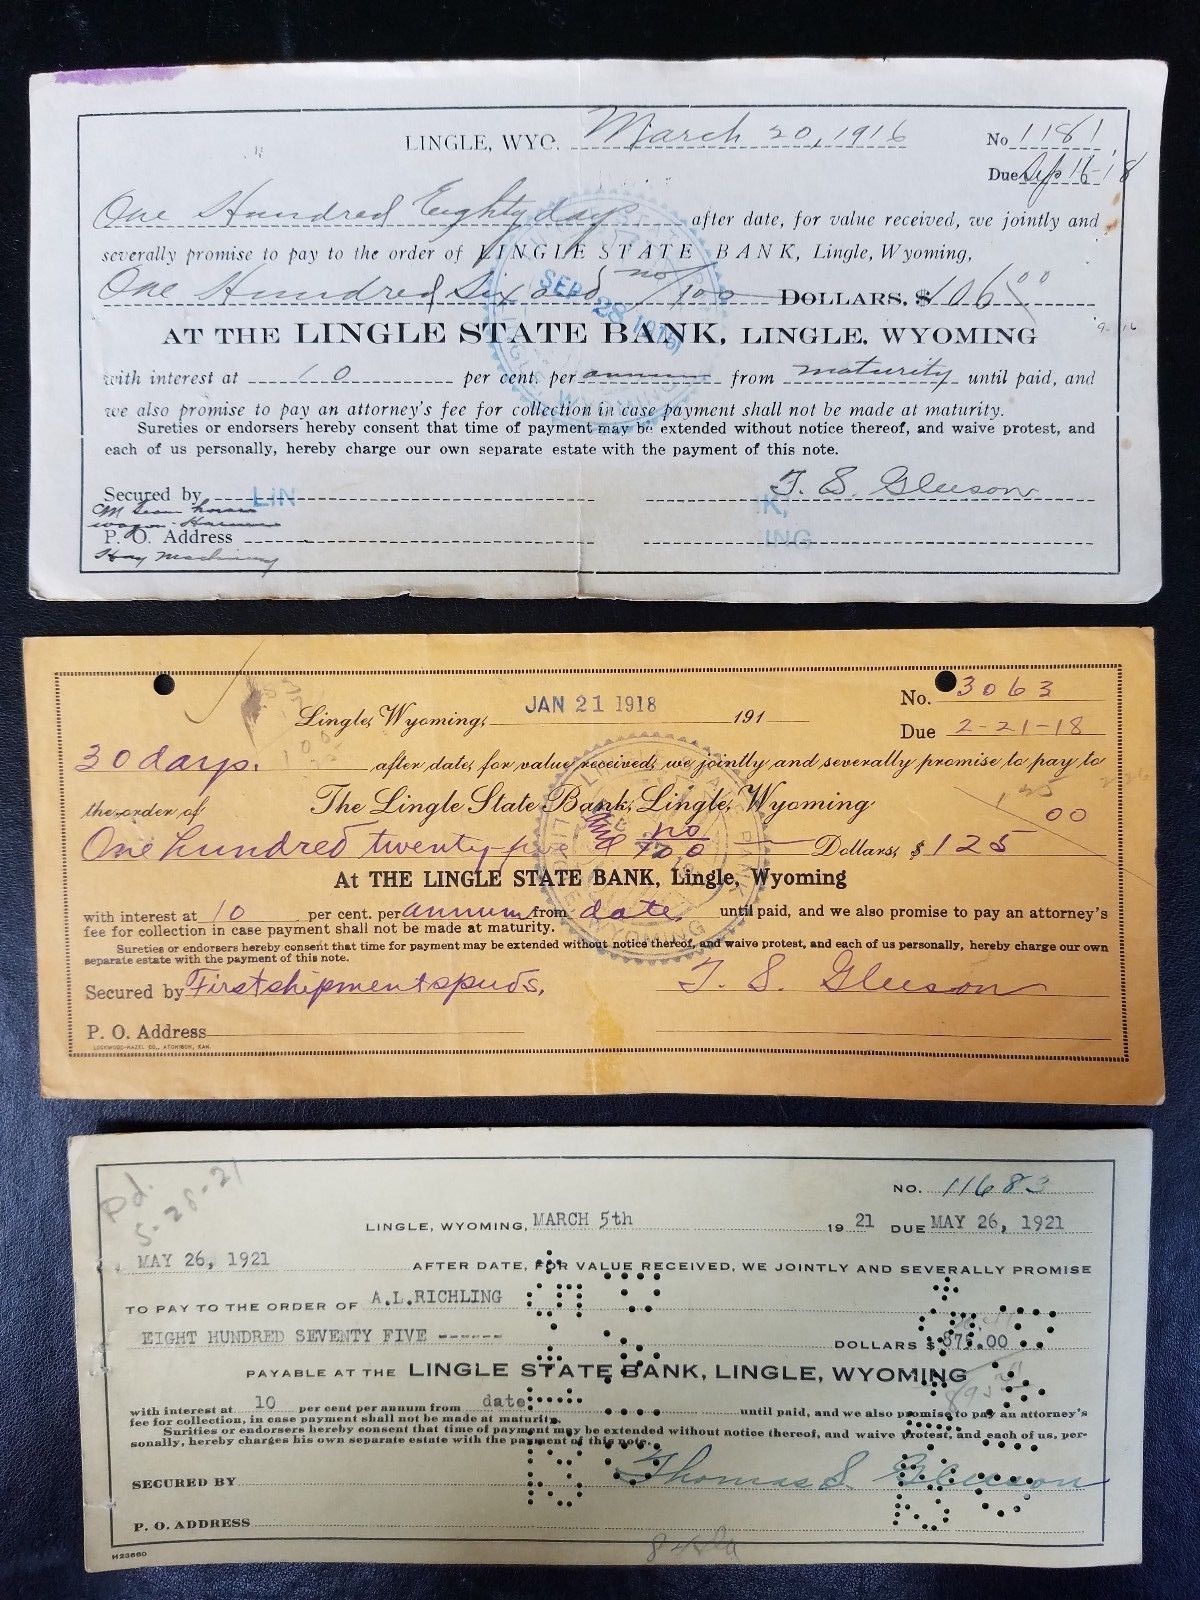 LINGLE, WYO. March 20, 1916 No 1181
Due Sep 16-18
One Hundred Eighty days after date, for value received, we jointly and
severally promise to pay to the order of LINGLE STATE BANK, Lingle, Wyoming,
One Hundred Six and no/100 DOLLARS, $106 00
AT THE LINGLE STATE BANK, LINGLE, WYOMING
with interest at 10 per cent. per annum from maturity until paid, and
we also promise to pay an attorney's fee for collection in case payment shall not be made at maturity.
Sureties or endorsers hereby consent that time of payment may be extended without notice thereof, and waive protest, and
each of us personally, hereby charge our own separate estate with the payment of this note.
T. S. Gleeson
Secured by LIN
K,
P. O. Address
ING
Hay Machinery
SEP 28 1916
Lingle, Wyoming, JAN 21 1918 191 No. 3063
Due 2-21-18
30 days. after date, for value received, we jointly and severally promise to pay to
the order of The Lingle State Bank, Lingle, Wyoming
One hundred twenty-five & no/100 Dollars, $ 125 00
At THE LINGLE STATE BANK, Lingle, Wyoming
with interest at 10 per cent. per annum from date, until paid, and we also promise to pay an attorney's
fee for collection in case payment shall not be made at maturity.
Sureties or endorsers hereby consent that time for payment may be extended without notice thereof, and waive protest, and each of us personally, hereby charge our own
separate estate with the payment of this note.
Secured by First shipment spuds, T. S. Gleeson
P. O. Address
LOCKWOOD-HAZEL CO., ATCHISON, KAN.
Pd.
5-28-21
NO. 11683
LINGLE, WYOMING, MARCH 5th 19 21 DUE MAY 26, 1921
MAY 26, 1921 AFTER DATE, FOR VALUE RECEIVED, WE JOINTLY AND SEVERALLY PROMISE
TO PAY TO THE ORDER OF A.L.RICHLING
EIGHT HUNDRED SEVENTY FIVE ------ DOLLARS $ 875.00
PAYABLE AT THE LINGLE STATE BANK, LINGLE, WYOMING
with interest at 10 per cent per annum from date until paid, and we also promise to pay an attorney's
fee for collection, in case payment shall not be made at maturity.
Surities or endorsers hereby consent that time of payment may be extended without notice thereof, and waive protest, and each of us, per-
sonally, hereby charges his own separate estate with the payment of this note.
SECURED BY Thomas S Gleeson
P. O. ADDRESS
H23660